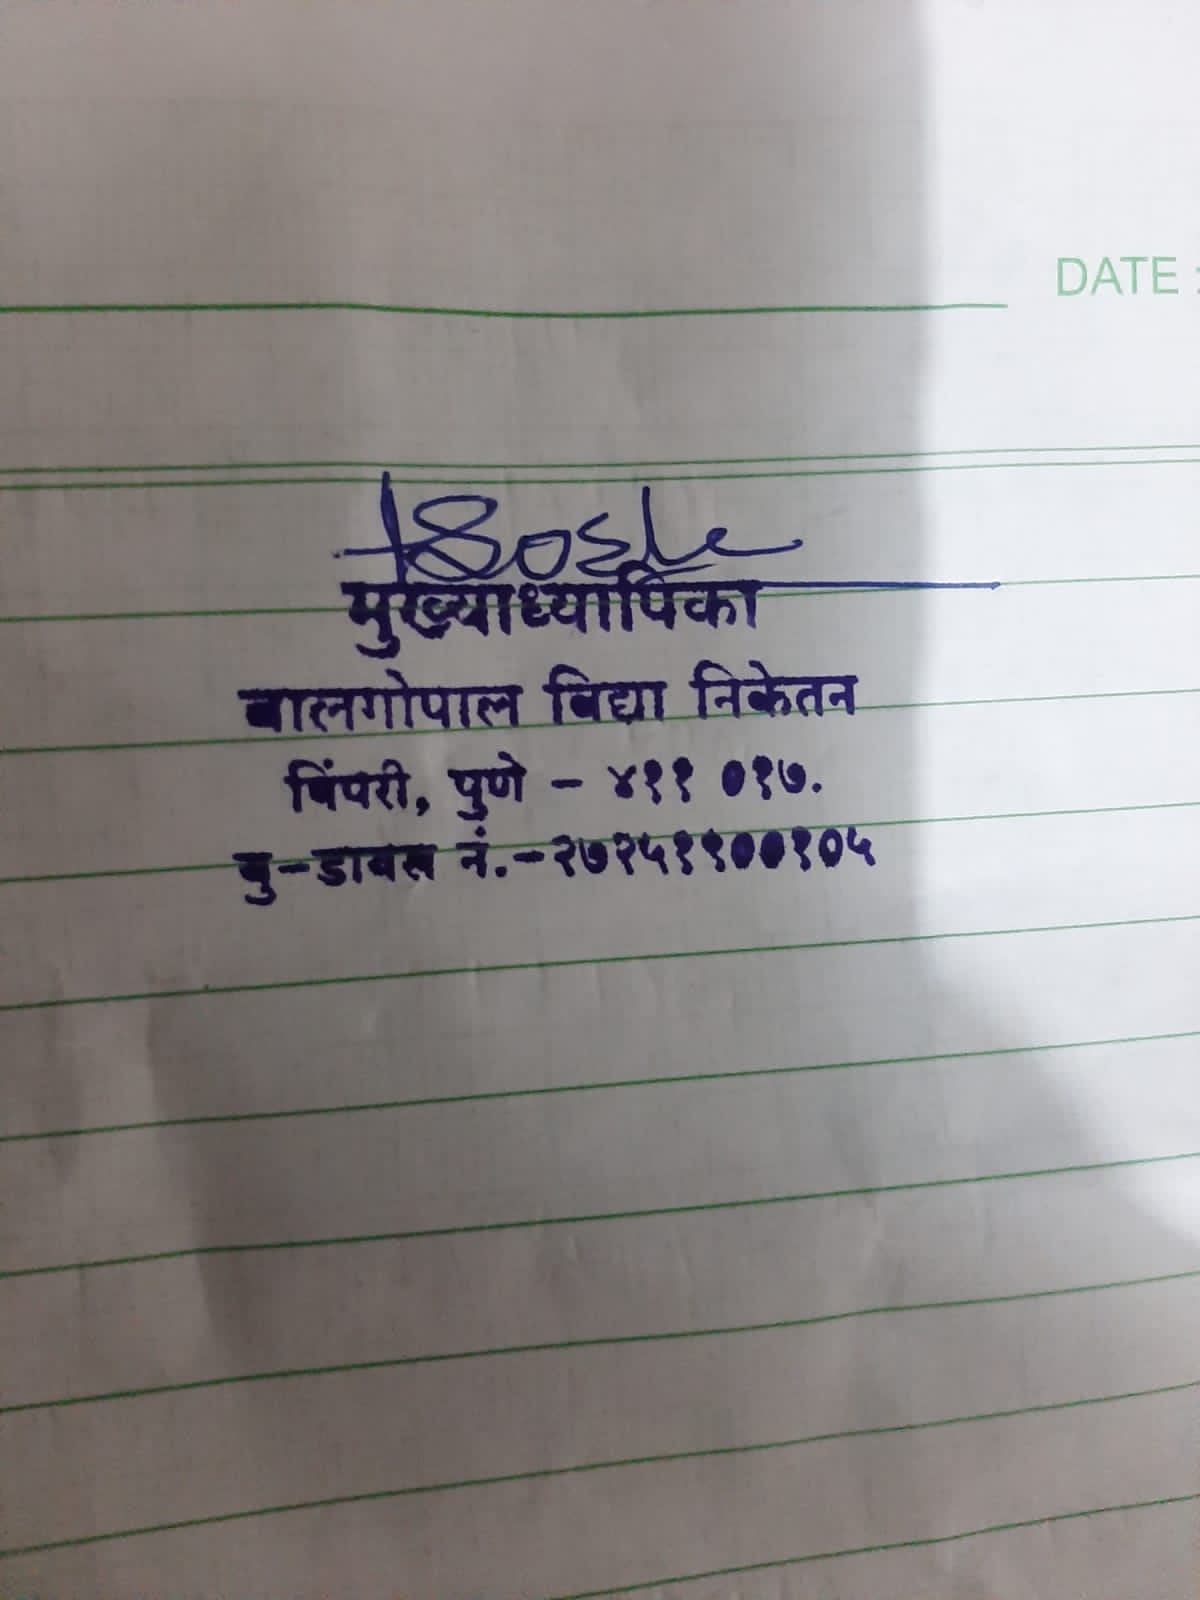 DATE :
मुख्याध्यापिका
बालगोपाल विद्या निकेतन
पिंपरी, पुणे - ४११ ०१७.
यु-डायस नं.-२७२५१९००१०५